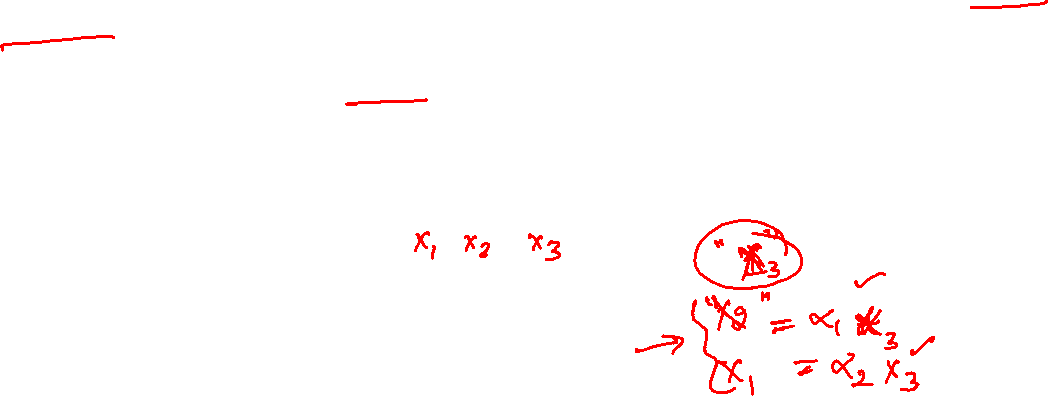 x₁ x₂ x₃
3
x₂ = α₁ x₃
x₁ = α₂ x₃